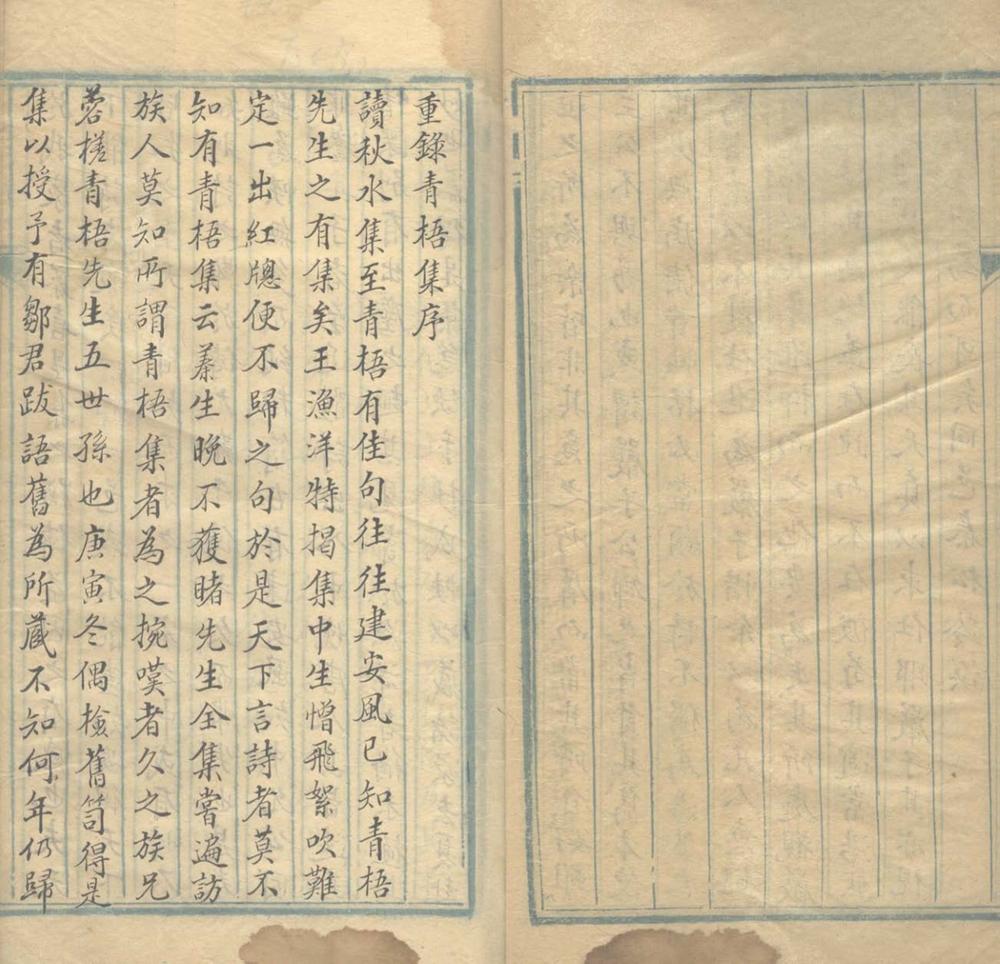 重錄青梧集序
讀秋水集至青梧有佳句往往建安風已知青梧
先生之有集矣王漁洋特揭集中生憎飛絮吹難
定一出紅牕便不歸之句於是天下言詩者莫不
知有青梧集云蓁生晚不獲睹先生全集嘗遍訪
族人莫知所謂青梧集者為之捥嘆者久之族兄
蓉槎青梧先生五世孫也庚寅冬偶檢舊笥得是
集以授予有鄒君跋語舊為所藏不知何年仍歸